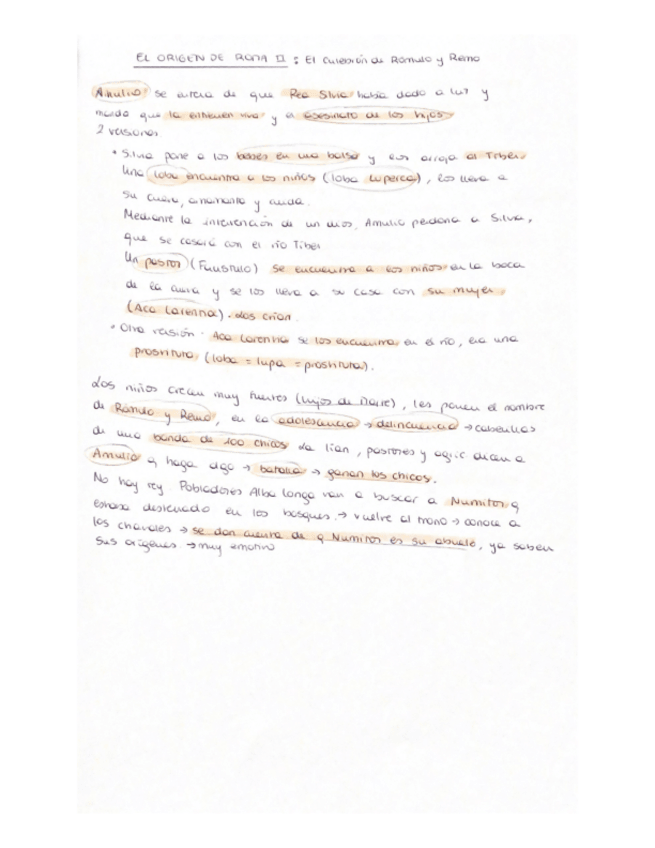 EL ORIGEN DE ROMA II : El culebrón de Rómulo y Remo
Amulio se entera de que Rea Silvia había dado a luz y
manda que la entierren viva y el asesinato de los hijos
2 versiones
• Silvia pone a los bebés en una bolsa y los arroja al Tíber.
Una loba encuentra a los niños (loba Luperca), los lleva a
su cueva, amamanta y cuida.
Mediante la intervención de un dios, Amulio perdona a Silvia,
que se casará con el río Tíber
Un pastor (Faustulo) se encuentra a los niños en la boca
de la cueva y se los lleva a su casa con su mujer
(Aca Larentia). Los crían.
• Otra versión. Aca Larentia se los encuentra en el río, era una
prostituta (loba = lupa = prostituta).
Los niños crecen muy fuertes (hijos de Marte), les ponen el nombre
de Rómulo y Remo, en la adolescencia → delincuencia → cabecillas
de una banda de 100 chicos. La lían, pastores y agric dicen a
Amulio q haga algo → batalla → ganan los chicos.
No hay rey. Pobladores Alba Longa van a buscar a Numitor q
estaba desterrado en los bosques. → vuelve al trono → conoce a
los chavales → se dan cuenta de q Numitor es su abuelo, ya saben
sus orígenes → muy emotivo